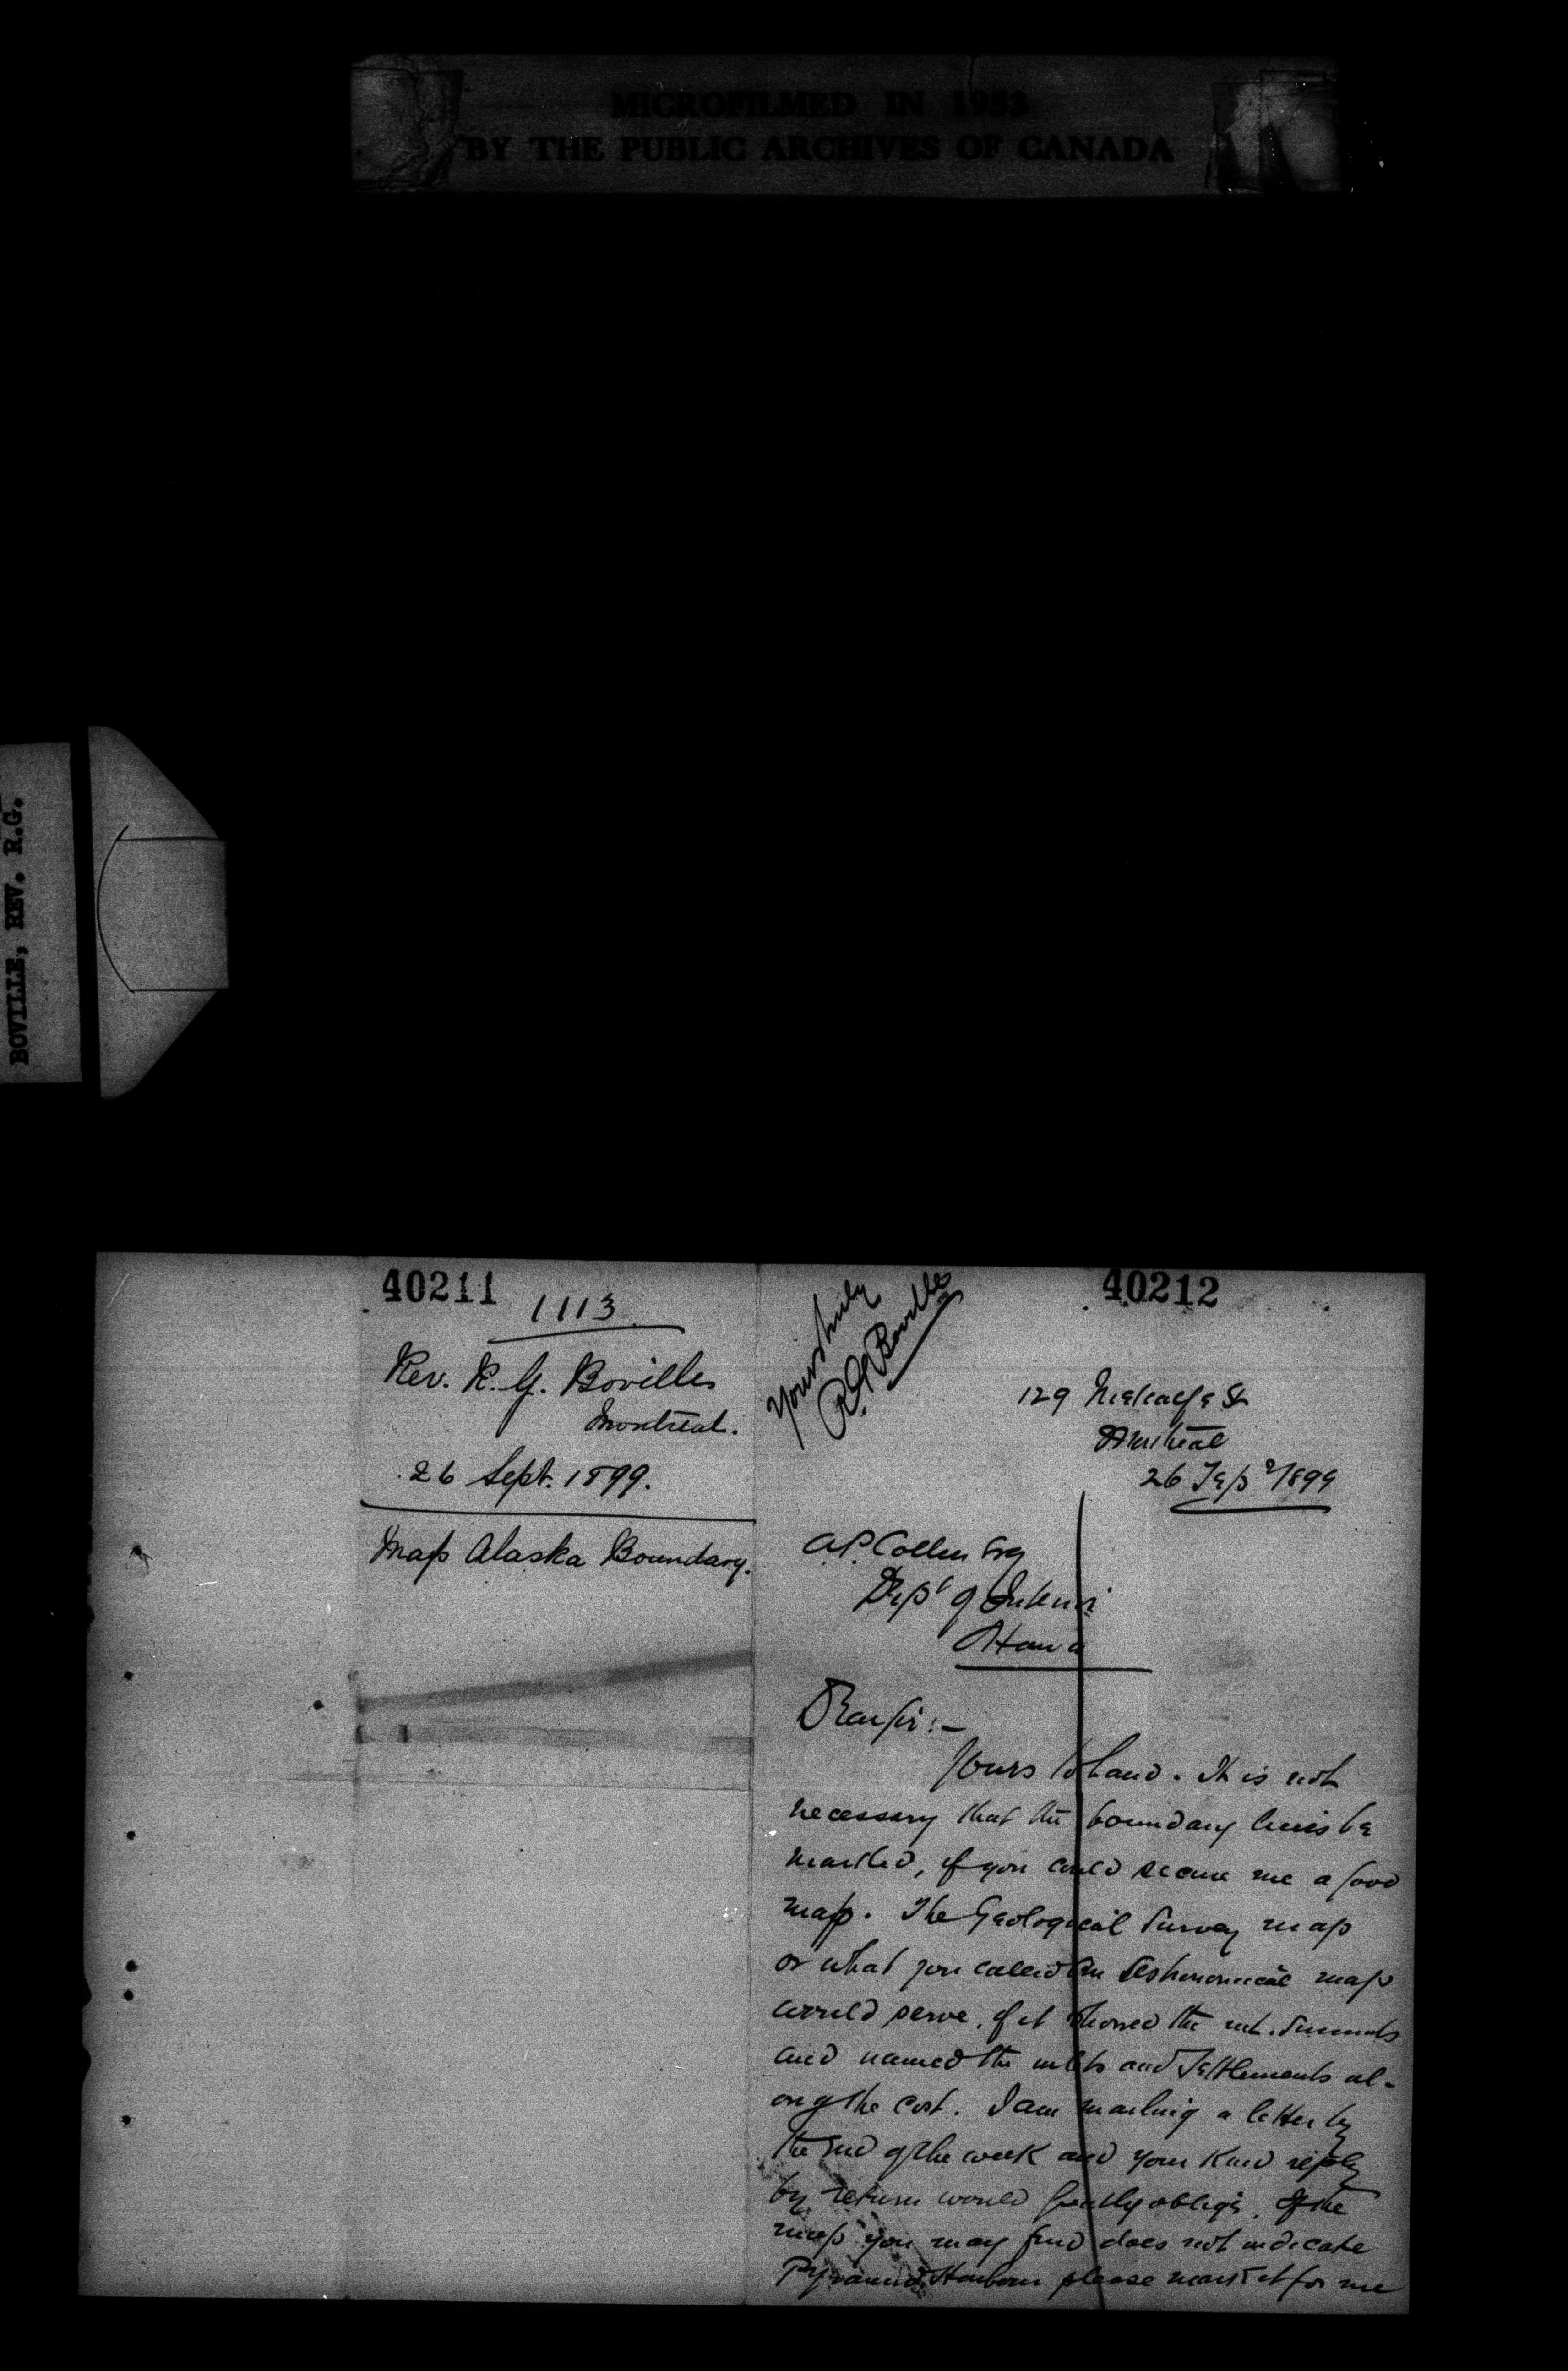 MICROFILMED IN 1953
BY THE PUBLIC ARCHIVES OF CANADA
BOVILLE, REV. R.G.
40211
1113
Rev. R. G. Boville
Montreal.
26 Sept. 1899.
Map Alaska Boundary.
40212
129 Metcalfe St
Montreal
26 Sep 1899
A.P. Collier Esq
Dept of Interior
Ottawa
Dear Sir:-
Yours to hand. It is not
necessary that the boundary lines be
marked, if you could secure me a good
map. The Geological Survey map
or what you called the Astronomical map
would serve, if it showed the mt. summits
and named the inlets and Settlements al-
ong the cost. I am mailing a letter by
the end of the week and your kind reply
by return would greatly oblige. If the
map you may find does not indicate
Pyramid Harbour please mark it for me
Yours truly
R.G. Boville